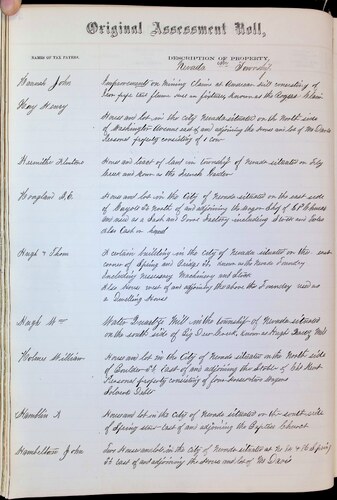 Original Assessment Roll,
NAMES OF TAX PAYERS.
DESCRIPTION OF PROPERTY,
Nevada Township
Hannah John
Improvements on Mining Claim at American hill consisting of
Iron pipe and flume now in fixture, known as the Rogers Claim
Hoy Henry
House and lot in the City of Nevada situated on the North side
of Washington Avenue east of and adjoining the house and lot of Mr Davis
Personal property consisting of 1 cow
House and tract of land in township of Nevada situated on
known as the French Garden
Hoagland
House and lot in the City of Nevada situated on the east side
of north of and adjoining the
and used as a Sash and Door Factory including Stock and Tools
also Cash on hand
Hugh & Thom
A certain building in the City of Nevada situated on the east
corner of Spring and Bridge St. known as the Nevada Foundry
Including necessary Machinery and Stock
Also house west of and adjoining the above the Foundry used as
a Dwelling House
Hugh Wm
Water Quartz Mill in the township of Nevada situated
on the south side of Big Deer Creek, known as Hughs Quartz Mill
Holmes William
House and lot in the City of Nevada situated on the North side
of Boulder St east of and adjoining the of
Personal property consisting of four Wagons
Hamblin
House and lot in the City of Nevada situated on the south side
of Spring street east of and adjoining the Baptist Church
Hambleton John
Two House and lots in the City of Nevada situated at the Spring
St east of and adjoining the house and lot of Mr Davis